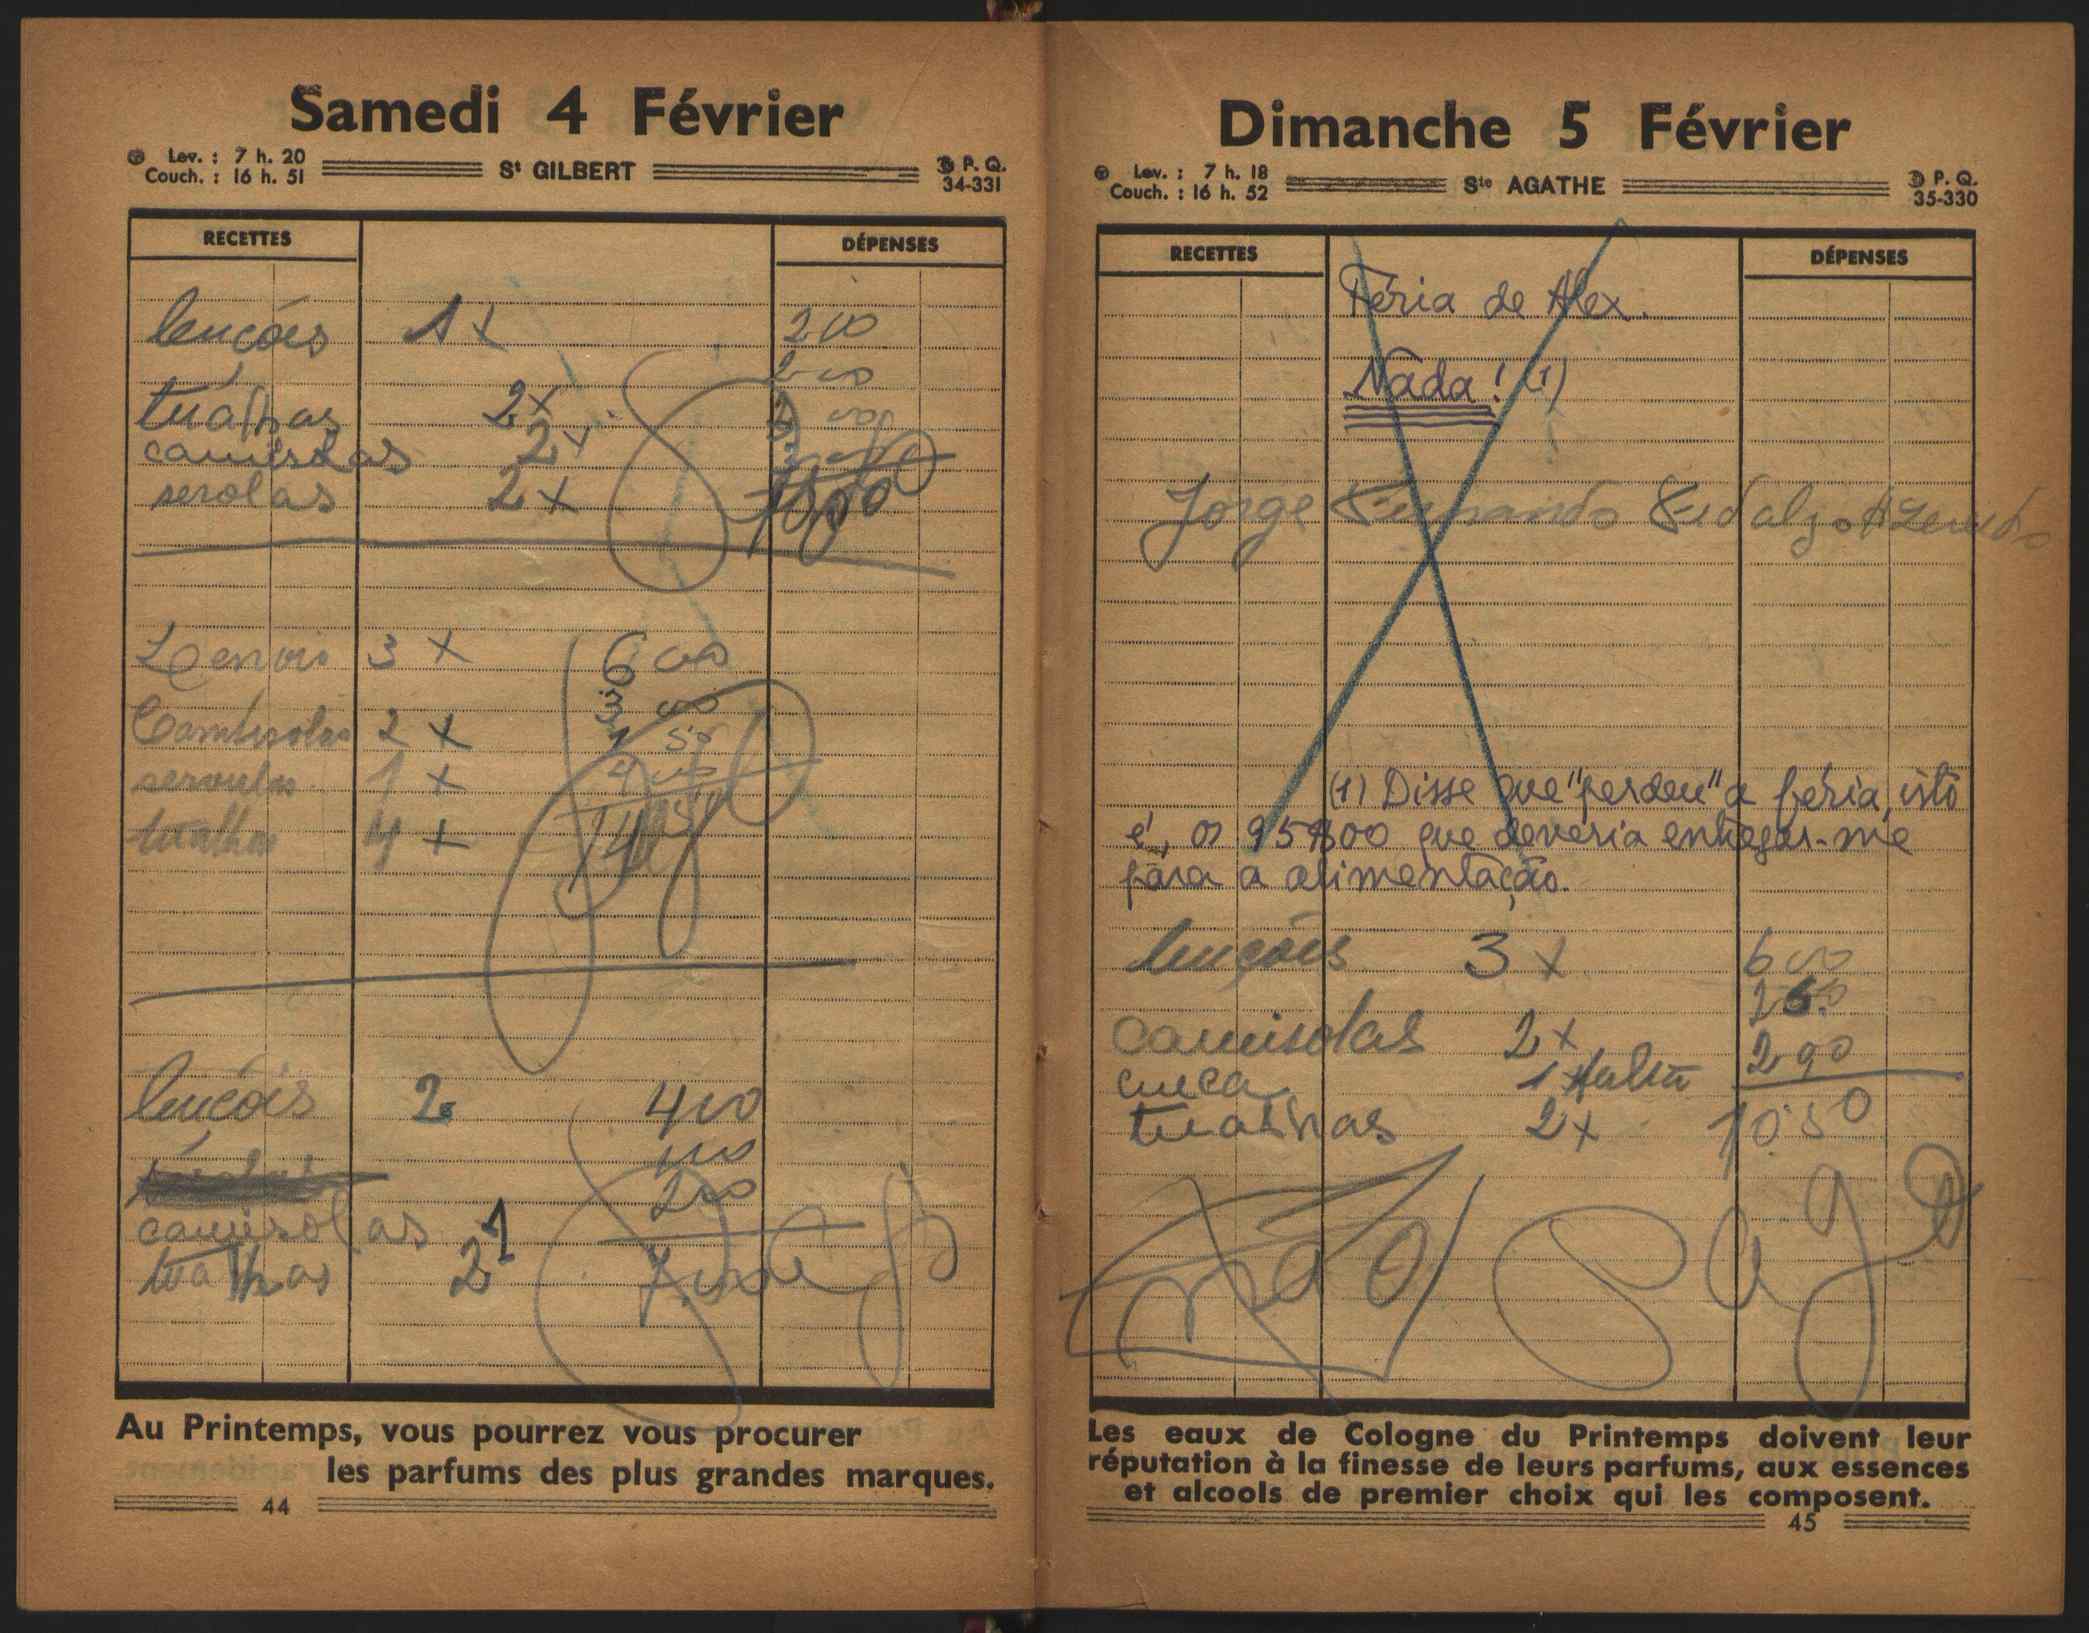 Samedi 4 Février
Lev. : 7 h. 20
Couch. : 16 h. 51
St GILBERT
P. Q.
34-331
RECETTES
DÉPENSES
lençóis 1x 200
tualhas 2x
camisolas 2x
serolas 2x
Lensois 3 x 6 00
Camisolas 2 x 3 00
seroulas 1 x 1 50
tualhas 4 x 4 00
lençóis 2 400
100
200
camisolas 1
tualhas 2 7.00
Au Printemps, vous pourrez vous procurer
les parfums des plus grandes marques.
44
Dimanche 5 Février
Lev. : 7 h. 18
Couch. : 16 h. 52
Ste AGATHE
P. Q.
35-330
RECETTES
DÉPENSES
Féria de Alex.
Nada! (1)
Jorge Fernando Fidalgo Azevedo
(1) Disse que "perdeu" a féria, isto
é, os 95$00 que deveria entregar-me
para a alimentação.
lençóis 3 x 6 00
camisolas 2x
cueca 1x 2 90
tualhas 2x 10.50
Não Pago
Les eaux de Cologne du Printemps doivent leur
réputation à la finesse de leurs parfums, aux essences
et alcools de premier choix qui les composent.
45